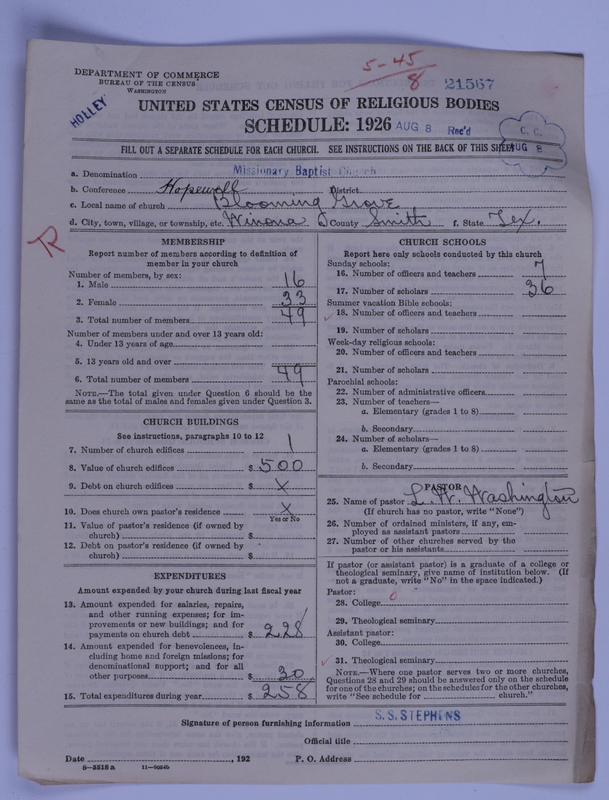 5-45
8
21567
DEPARTMENT OF COMMERCE
BUREAU OF THE CENSUS
WASHINGTON
HOLLEY
UNITED STATES CENSUS OF RELIGIOUS BODIES
SCHEDULE: 1926 AUG 8 Rec'd
C. C.
AUG 8
FILL OUT A SEPARATE SCHEDULE FOR EACH CHURCH. SEE INSTRUCTIONS ON THE BACK OF THIS SHEET
a. Denomination Missionary Baptist Church
b. Conference Hopewell District.
c. Local name of church Blooming Grove
d. City, town, village, or township, etc. Winona County Smith f. State Tex.
R
MEMBERSHIP
Report number of members according to definition of
member in your church
Number of members, by sex:
1. Male 16
2. Female 33
3. Total number of members 49
Number of members under and over 13 years old:
4. Under 13 years of age
5. 13 years old and over
6. Total number of members 49
NOTE.—The total given under Question 6 should be the
same as the total of males and females given under Question 3.
CHURCH BUILDINGS
See instructions, paragraphs 10 to 12
7. Number of church edifices 1
8. Value of church edifices $ 500
9. Debt on church edifices $ X
10. Does church own pastor's residence X
Yes or No
11. Value of pastor's residence (if owned by
church) $
12. Debt on pastor's residence (if owned by
church) $
EXPENDITURES
Amount expended by your church during last fiscal year
13. Amount expended for salaries, repairs,
and other running expenses; for im-
provements or new buildings; and for
payments on church debt $ 228
14. Amount expended for benevolences, in-
cluding home and foreign missions; for
denominational support; and for all
other purposes $ 30
15. Total expenditures during year $ 258
CHURCH SCHOOLS
Report here only schools conducted by this church
Sunday schools:
16. Number of officers and teachers 7
17. Number of scholars 36
Summer vacation Bible schools:
18. Number of officers and teachers
19. Number of scholars
Week-day religious schools:
20. Number of officers and teachers
21. Number of scholars
Parochial schools:
22. Number of administrative officers
23. Number of teachers—
a. Elementary (grades 1 to 8)
b. Secondary
24. Number of scholars—
a. Elementary (grades 1 to 8)
b. Secondary
PASTOR
25. Name of pastor L. W. Washington
(If church has no pastor, write "None")
26. Number of ordained ministers, if any, em-
ployed as assistant pastors
27. Number of other churches served by the
pastor or his assistants
If pastor (or assistant pastor) is a graduate of a college or
theological seminary, give name of institution below. (If
not a graduate, write "No" in the space indicated.)
Pastor:
28. College 0
29. Theological seminary
Assistant pastor:
30. College
31. Theological seminary
NOTE.—Where one pastor serves two or more churches,
Questions 28 and 29 should be answered only on the schedule
for one of the churches; on the schedules for the other churches,
write "See schedule for church."
Signature of person furnishing information S. S. STEPHENS
Official title
Date , 192 P. O. Address
8—5518 a 11—9024b